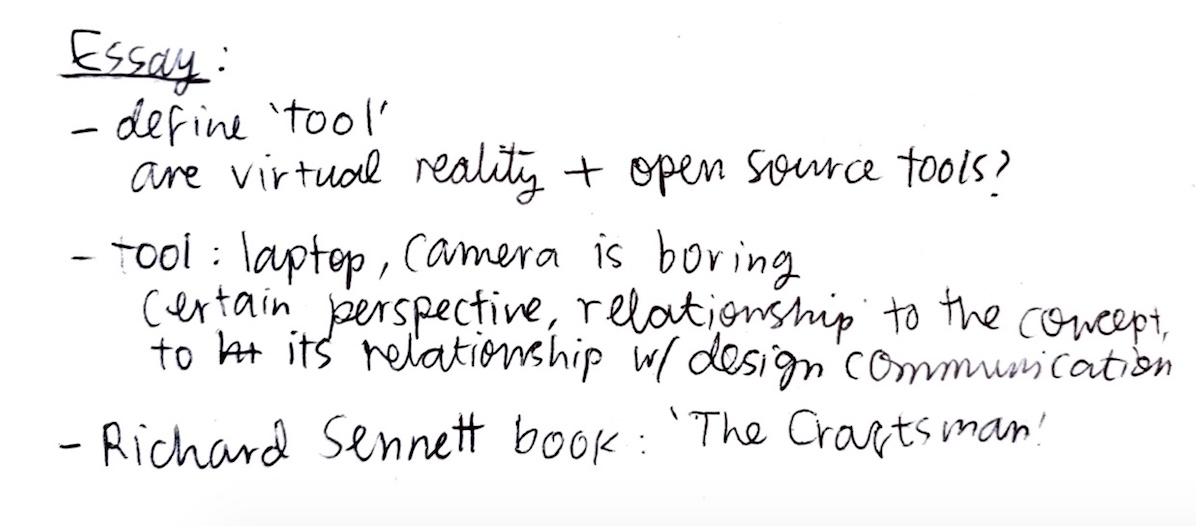 Essay:
- define 'tool'
are virtual reality + open source tools?
- tool: laptop, camera is boring
certain perspective, relationship to the concept,
to its relationship w/ design communication
- Richard Sennett book: 'The Craftsman'